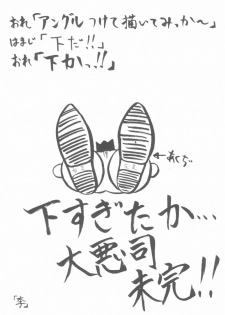 おれ「アングルつけて描いてみっか〜」
はまじ「下だ!!」
おれ「下かっ!!」
下すぎたか…
大悪司
未完!!
「李」